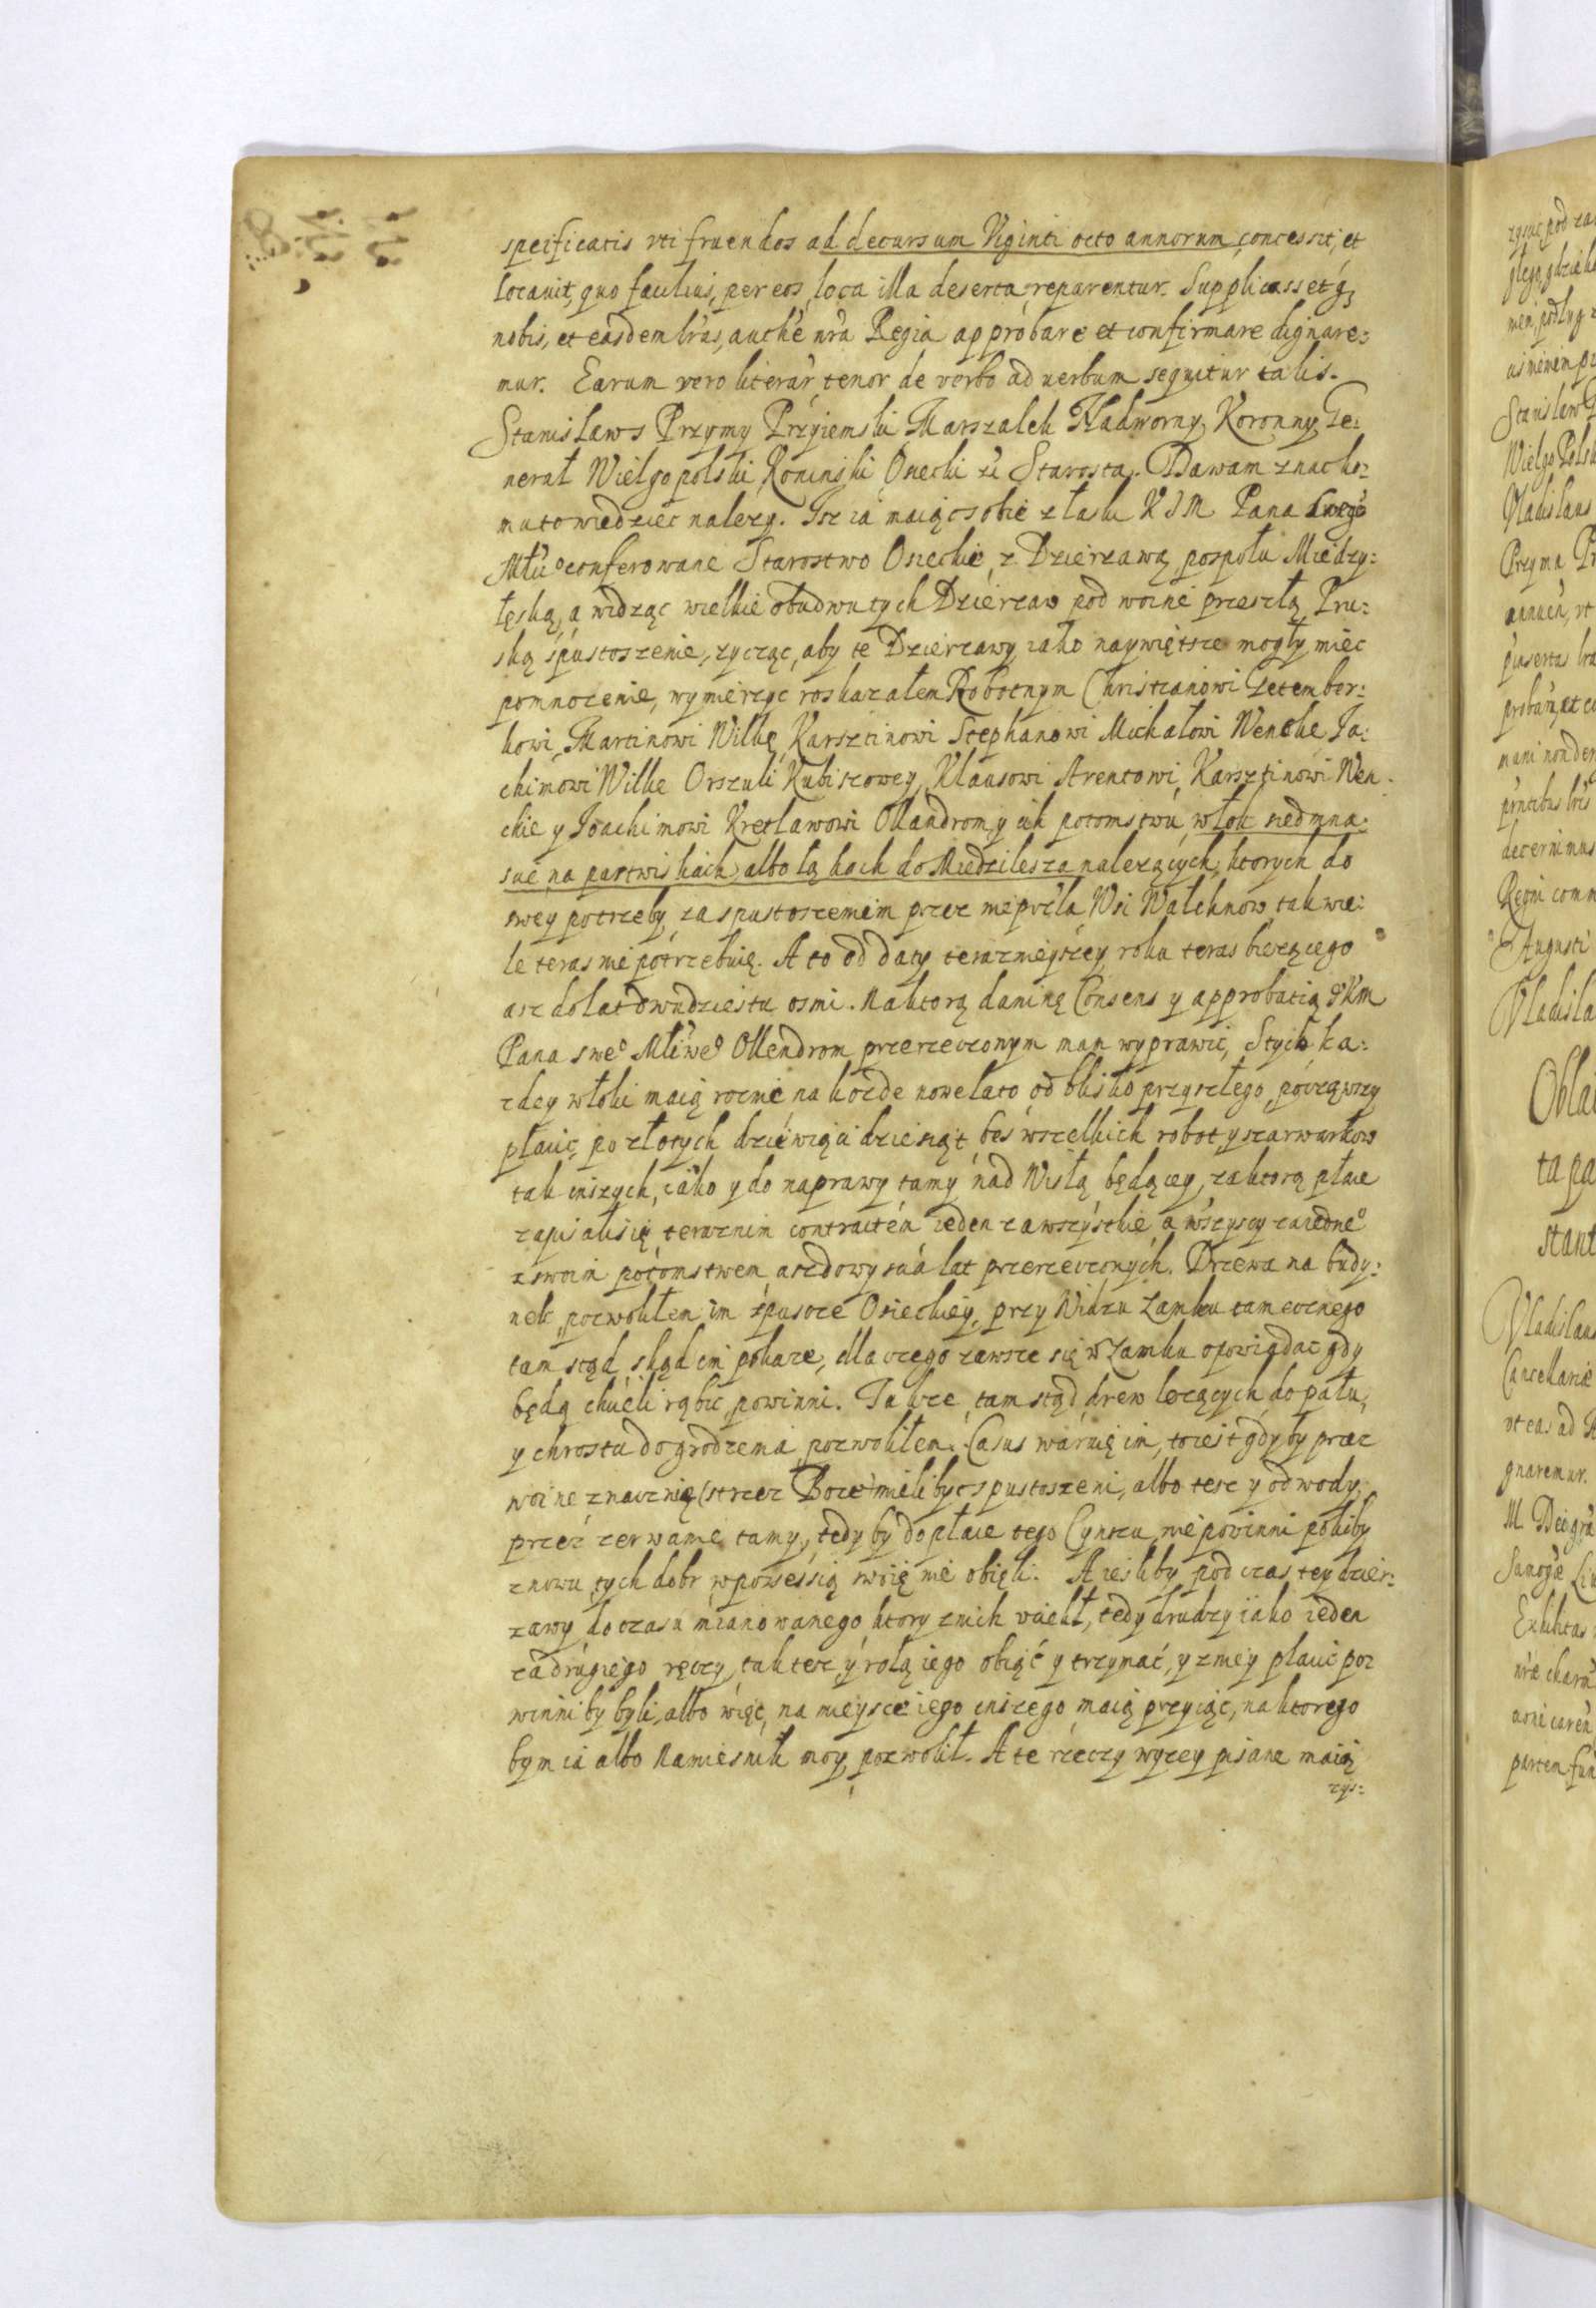 specificatis vti fruendos ad decursum Viginti octo annorum concessit, et
locauit, quo facilius, per eos, loca illa deserta reparentur. Supplicasset q3
nobis, et easdem lras, authe nra Regia approbare et confirmare dignare:
mur. Earum vero literar tenor de verbo ad verbum sequitur talis.
Stanislaw s Przymy Przyiemski Marszalek Nadworny Koronny Ge:
nerał Wielgopolski Koninski Osiecki Starosta. Dawam znac ko:
mu to wiedziec nalezy. Isz ia maiąc sobie z łaski K J M Pana swego
Młɯ° conferowane Starostwo Osieckie, z Dzierzawą pospołu Miedzy:
łęską, a widząc wielkie obudwu tych Dzierzaw pod woine przeszłą Pru:
ską spustoszenie, zycząc, aby te Dzierzawy iako naywiętsze mogły miec
pomnozenie, wymierzyc roskazałem Robotnym Christianowi Getember:
kowi, Martinowi Wilkę, Karsztinowi Stephanowi Michałowi Wencke, Ja:
chimowi Wilke Orszuli Kubiszowey, Klausowi Arentowi, Karsztinowi Wen
ckie y Joachimowi Kretlawowi Ollandrom y ich potomstwu, włok siedmna:
scie na partwiskach albo łąkach do Miedzilesza nalezących, ktorych do
swey potrzeby za spustoszeniem przez Wsi Walchnow, tak wie:
le teras nie potrzebuię. A to od daty teraznieyszey roku teras biezącego
asz do lat dwudziestu osmi. Na ktorą daninę Consens y approbatią Km
Pana swe° Młiwe° Ollendrom przerzeczonym mam wyprawic, Stych ka:
zdey włoki maią rocznie na kozde nowe lato od blisko przyszłego, począwszy
płacic po złotych dziewiąci dziesiąt, bes wszelkich robot y szarwarkow
tak inszych, iako y do naprawy tamy nad Wisłą będącey, za ktorą płace
zapisali się teraznim contractem ieden za wszystkie, a wszyscy za iedne°
z swoim potomstwem, asz do wyscia lat przerzeczonych. Drzewa na budy:
nek, pozwoliłem im spuscze Osieckiey, przy Widzu Zamku tamecznego
tam stąd, skąd im pokaze, dla czego zawsze się w Zamku opowiadac gdy
będą chcieli rąbic, powinni. Takze, tam stąd, drew lezących do pału,
y chrostu do grodzenia pozwoliłem. Casus waruię im, to iest gdyby przez
woinę znaczną (strzez Boze) mieli byc spustoszeni, albo tesz y od wody,
przez zerwanie tamy, tedy by do płace tego Cynszu nie powinni pokiby
znowu tych dobr w possessią swoię nie obięli. A iesliby pod czas tey dzier:
zawy, do czasu mianowanego ktory z nich uciekł, tedy drudzy iako ieden
za drugiego ręczy, tak tesz y rolą iego obiąć y trzymać, y z niey płacic po:
winni by byli, albo więc, na mieysce iego inszego maią przyiąc, na ktorego
bym ia albo Namiesnik moy pozwolił. A te rzeczy wyzey pisane maią
zys: